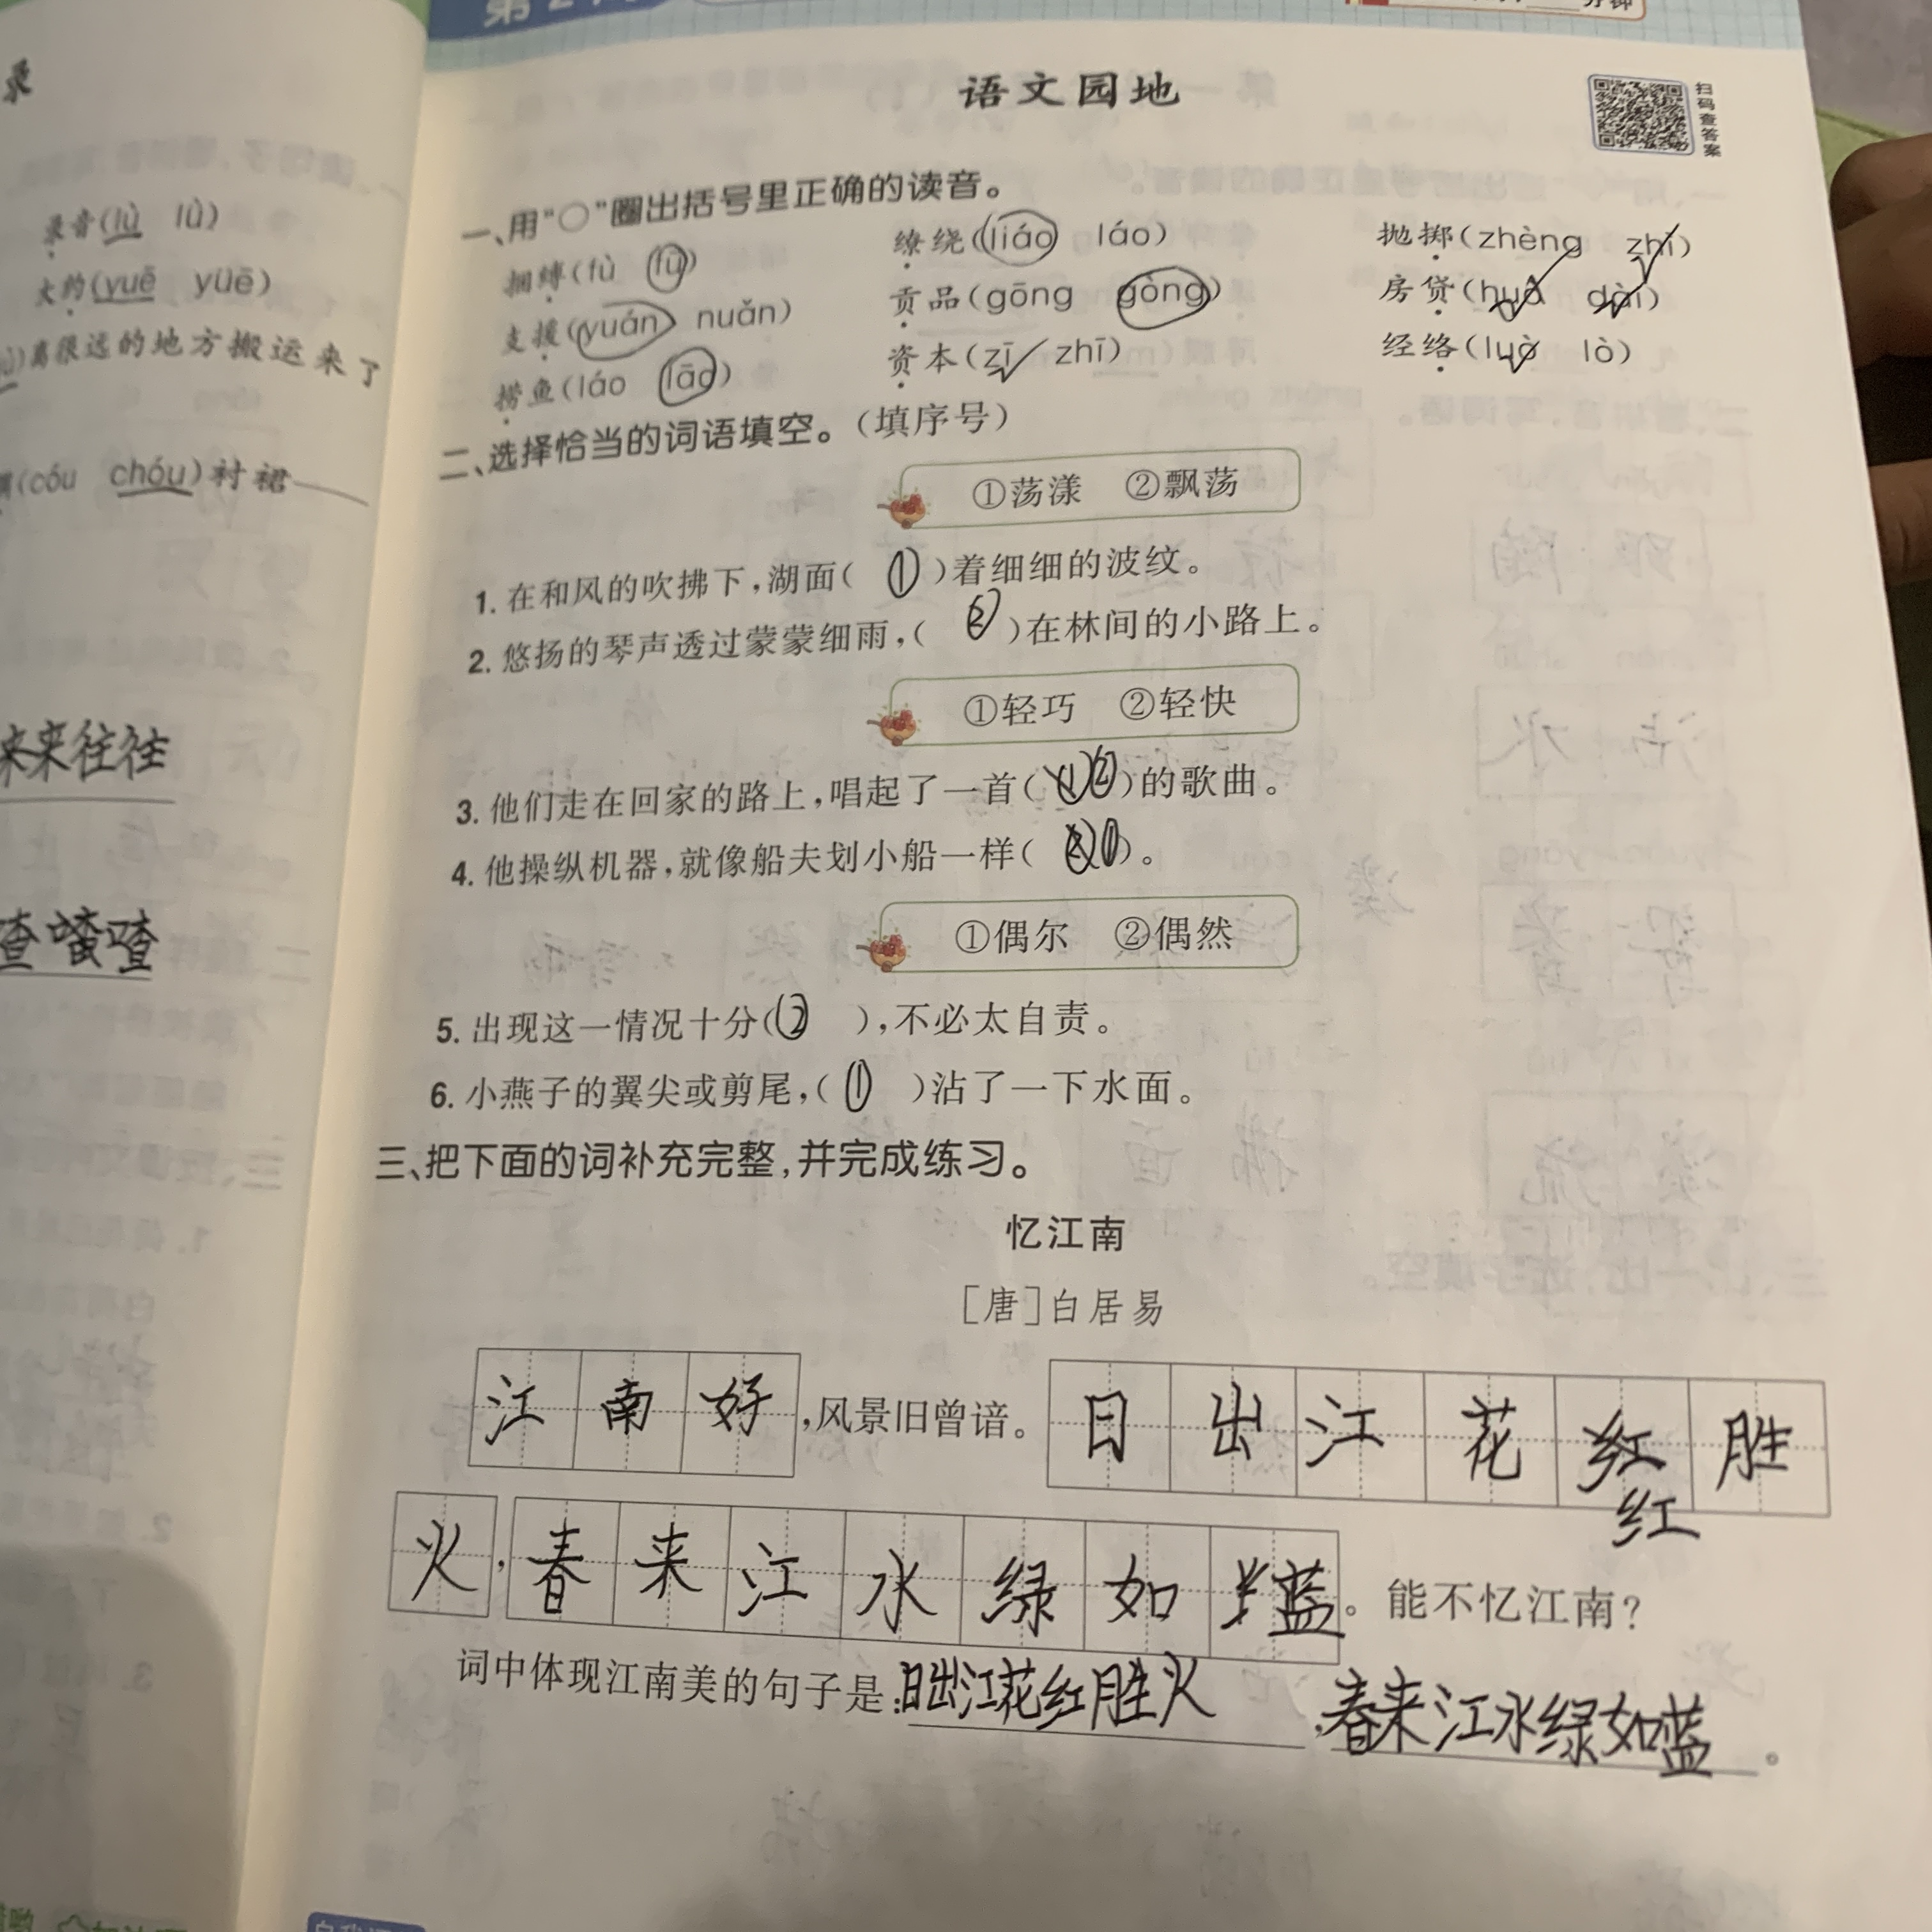 录
录音(lù lǜ)
大约(yuē yüē)
离很远的地方搬运来了
(cóu chóu)衬裙
来来往往
喳喳喳
语文园地
扫码查答案
一、用“○”圈出括号里正确的读音。
捆缚(fù fū) 缭绕(liáo láo) 抛掷(zhèng zhì)
支援(yuán nuǎn) 贡品(gōng gòng) 房贷(huò dài)
捞鱼(láo lāo) 资本(zī zhī) 经络(luò lò)
二、选择恰当的词语填空。(填序号)
①荡漾 ②飘荡
1. 在和风的吹拂下,湖面( ① )着细细的波纹。
2. 悠扬的琴声透过蒙蒙细雨,( ② )在林间的小路上。
①轻巧 ②轻快
3. 他们走在回家的路上,唱起了一首( ② )的歌曲。
4. 他操纵机器,就像船夫划小船一样( ① )。
①偶尔 ②偶然
5. 出现这一情况十分( ② ),不必太自责。
6. 小燕子的翼尖或剪尾,( ① )沾了一下水面。
三、把下面的词补充完整,并完成练习。
忆江南
[唐]白居易
江南好,风景旧曾谙。日出江花红胜
红
火,春来江水绿如蓝。能不忆江南?
词中体现江南美的句子是:日出江花红胜火,春来江水绿如蓝。